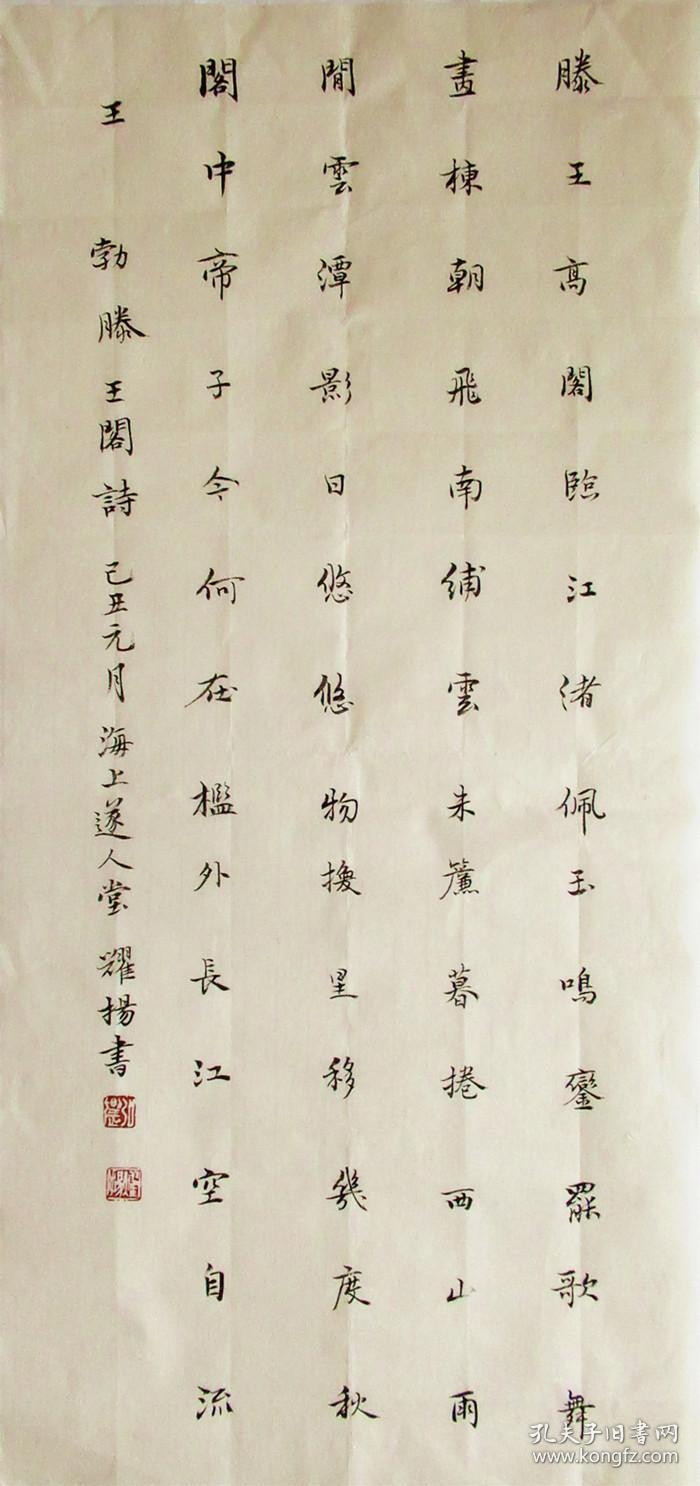 滕王高閣臨江渚佩玉鳴鑾罷歌舞
畫棟朝飛南浦雲朱簾暮捲西山雨
閒雲潭影日悠悠物換星移幾度秋
閣中帝子今何在檻外長江空自流
王勃滕王閣詩 己丑元月海上遂人堂 耀揚書
孔夫子旧书网
www.kongfz.com